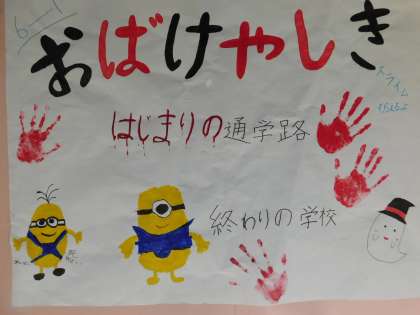 6-1
おばけやしき
はじまりの通学路
終わりの学校